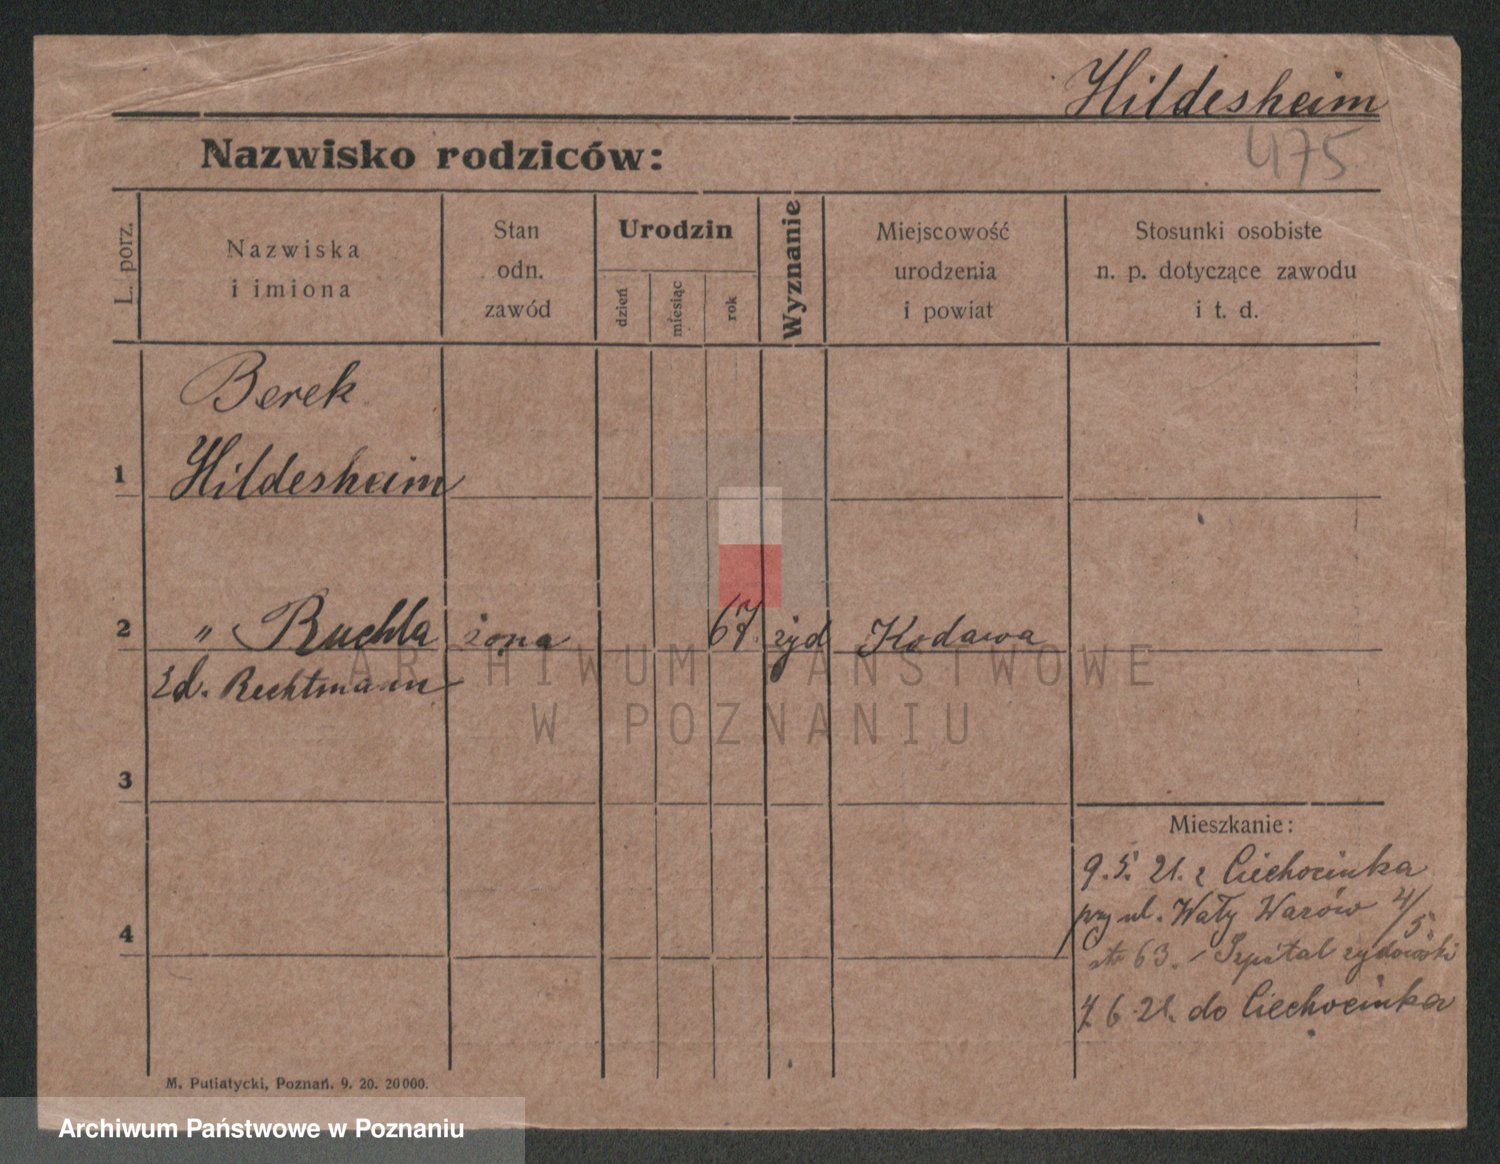 Hildesheim
475
Nazwisko rodziców:
L. porz.
Nazwiska
i imiona
Stan
odn.
zawód
Urodzin
dzień
miesiąc
rok
Wyznanie
Miejscowość
urodzenia
i powiat
Stosunki osobiste
n. p. dotyczące zawodu
i t. d.
Berek
1 Hildesheim
2 " Ruchla żona 67. żyd Kodawa
zd. Rechtmann
3
4
Mieszkanie:
9.5. 21. z Ciechocinka
przy ul. Wały Wazów 4/5
63. - Szpital żydowski
7. 6. 21. do Ciechocinka
M. Putiatycki, Poznań. 9. 20. 20000.
ARCHIWUM PAŃSTWOWE
W POZNANIU
Archiwum Państwowe w Poznaniu